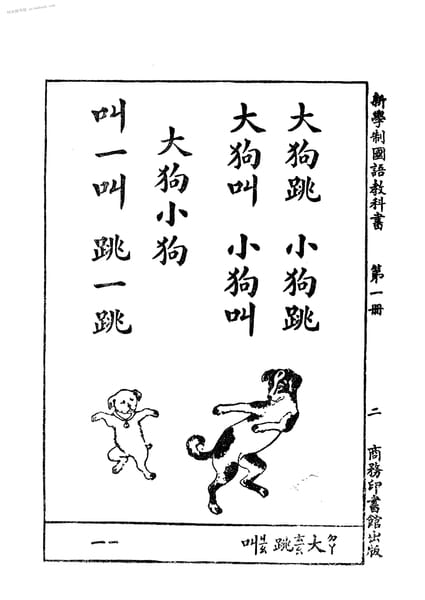 新學制國語教科書 第一冊 二 商務印書館出版
大狗跳 小狗跳
大狗叫 小狗叫
大狗小狗
叫一叫 跳一跳
大ㄉㄚ跳ㄊㄧㄠ叫ㄐㄧㄠ
一一